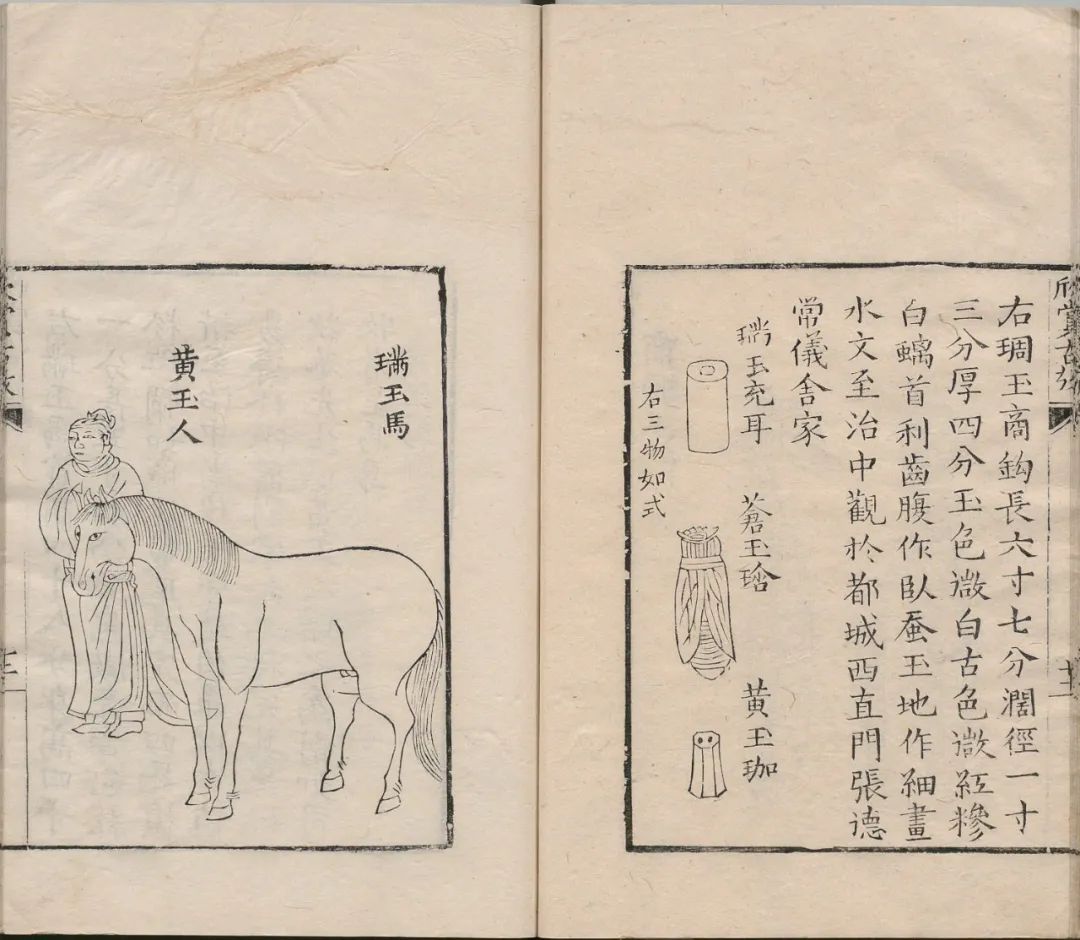 右琱玉商鈎長六寸七分濶徑一寸
三分厚四分玉色㣲白古色㣲紅糝
白螭首利齒腹作臥蚕玉地作細畫
水文至治中觀於都城西直門張德
常儀舍家
璊玉充耳
蒼玉琀
黄玉珈
右三物如式
璊玉馬
黄玉人